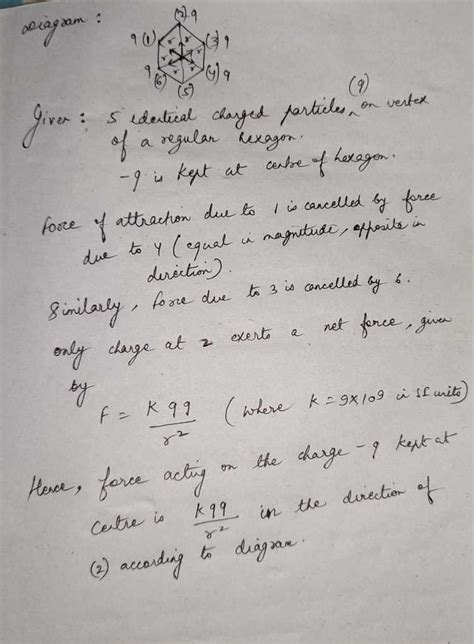 Diagram :
(2) q
q (1) (3) q
r r r r r r
q (6) (4) q
(5)
(q)
Given : 5 identical charged particles ^ on vertex
of a regular hexagon.
-q is kept at centre of hexagon.
Force of attraction due to 1 is cancelled by force
due to 4 (equal in magnitude, opposite in
direction).
Similarly, force due to 3 is cancelled by 6.
only charge at 2 exerts a net force, given
by
F = K q q / r² (where K = 9×10⁹ in SI units)
Hence, force acting on the charge -q kept at
centre is K q q / r² in the direction of
(2) according to diagram.